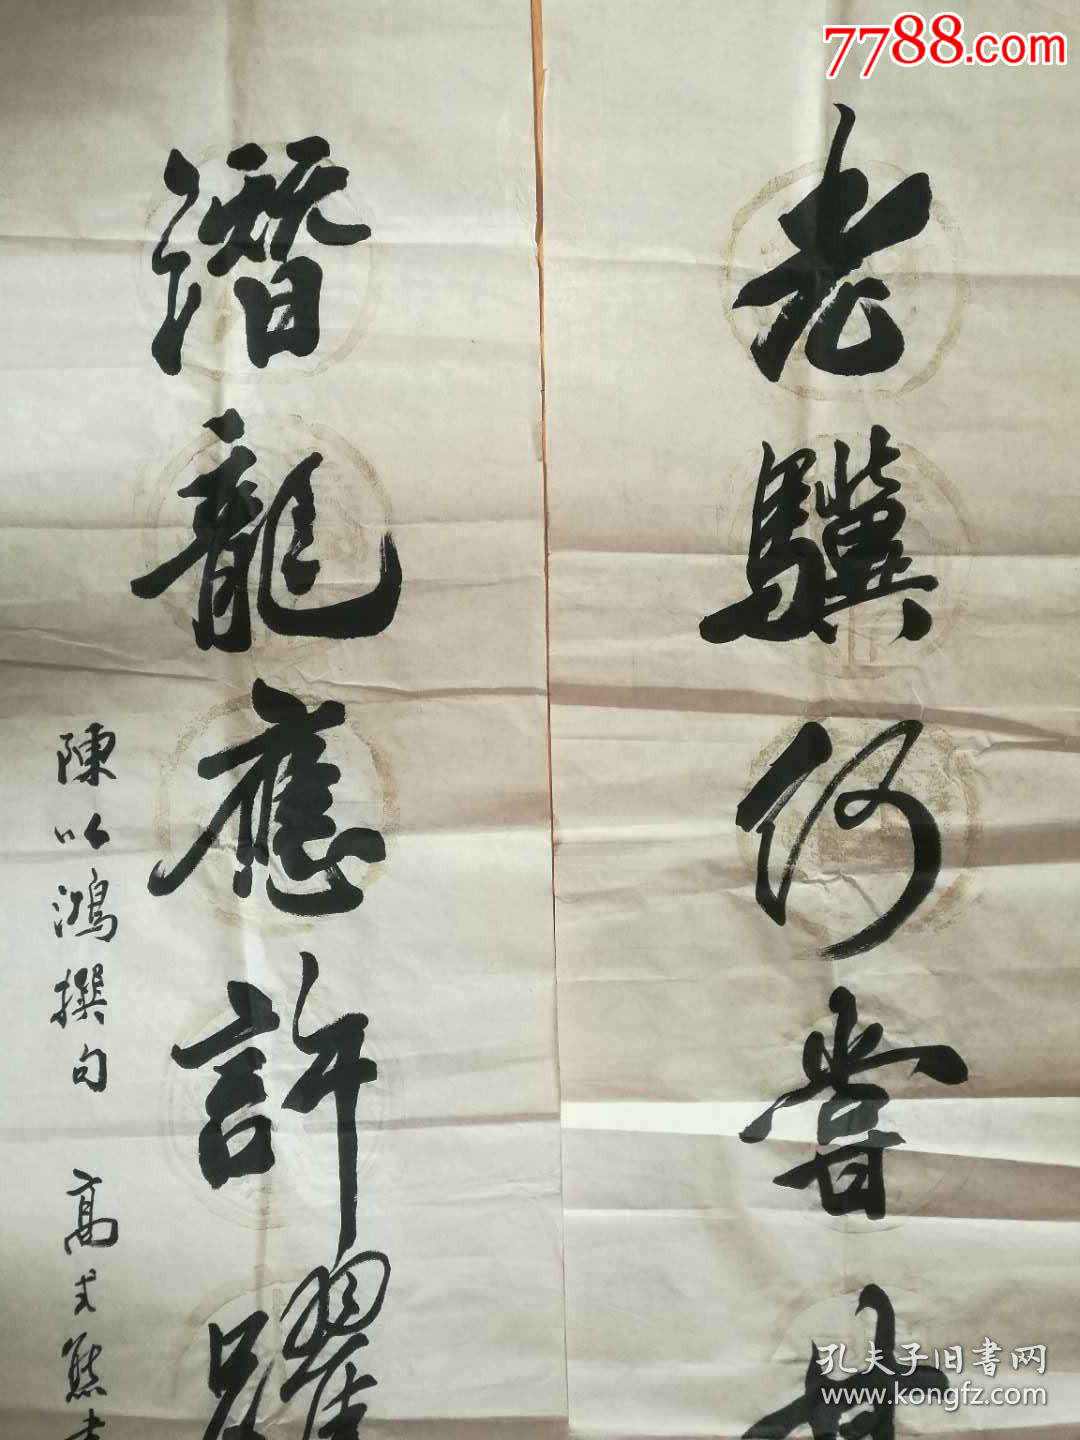 7788.com
老驥何嘗甘
潛龍應許躍
陳以鴻撰句 高式熊書
孔夫子旧書网
www.kongfz.com